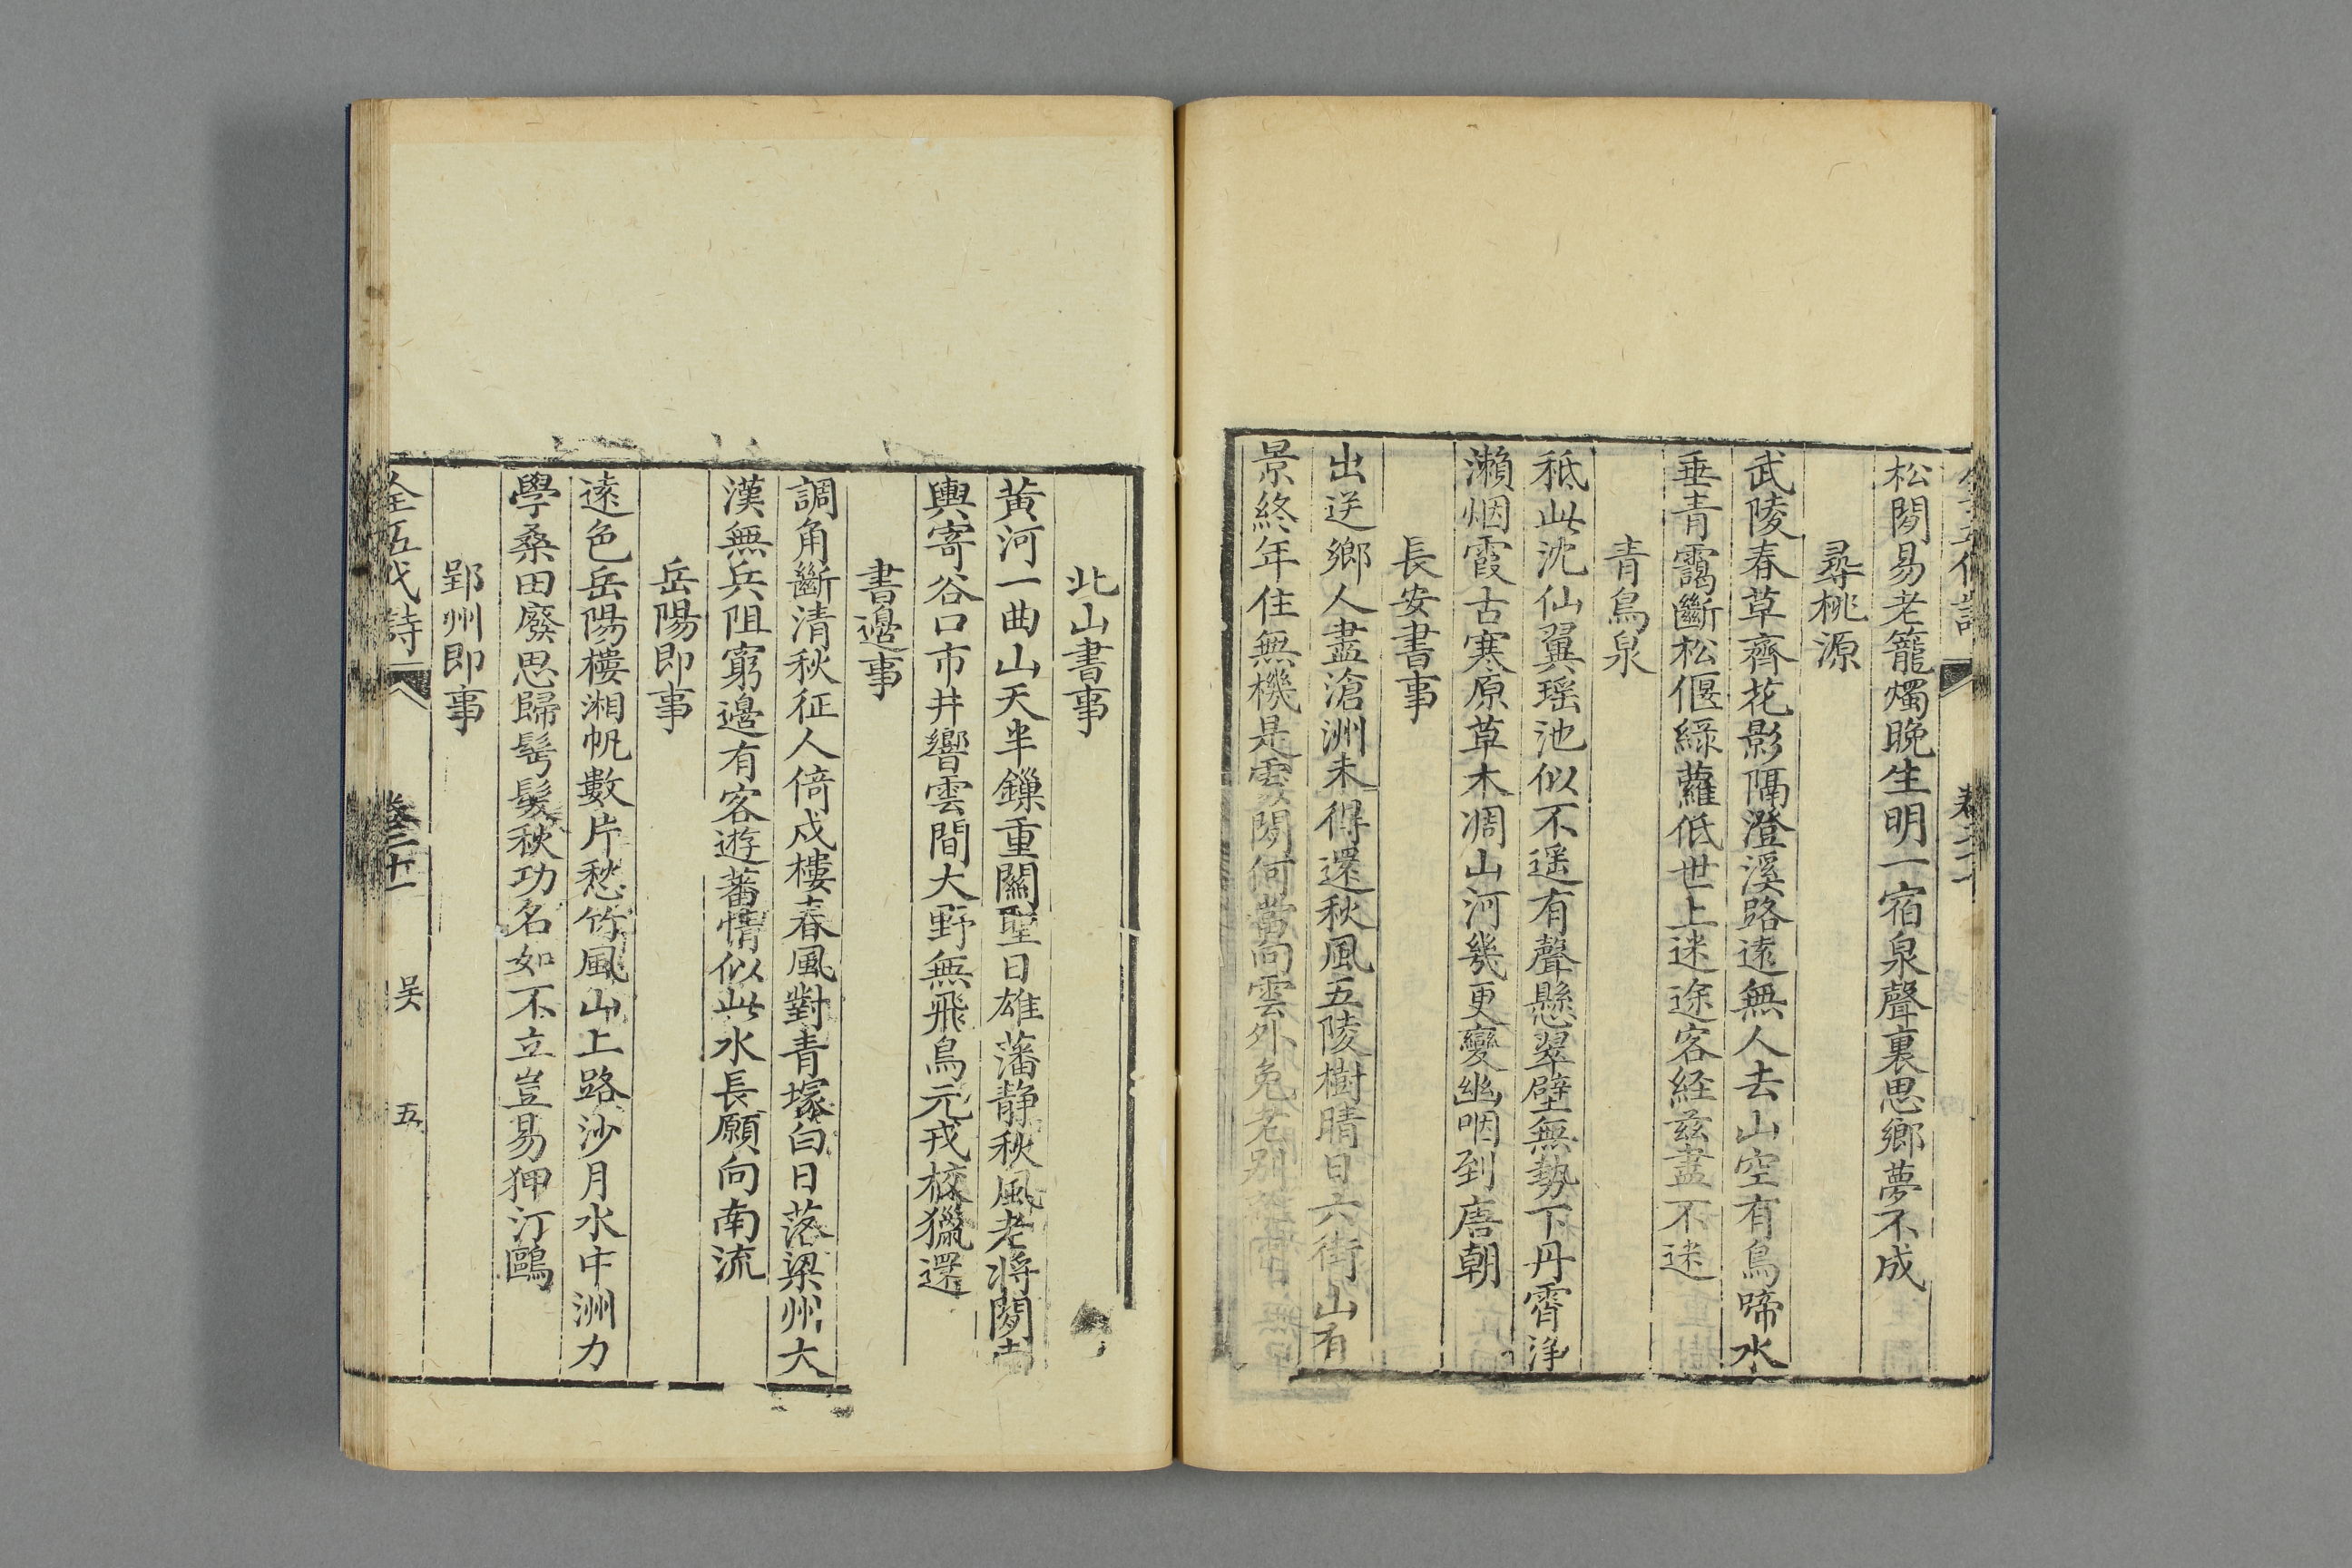 松閣易老籠燭晚生明一宿泉聲裏思鄉夢不成
尋桃源
武陵春草齊花影隔澄溪路遠無人去山空有鳥啼水
垂青靄斷松偃綠蘿低世上迷途客経茲盡不迷
青鳥泉
秪此沈仙翼瑶池似不遥有聲懸翠壁無勢下丹霄淨
瀨烟霞古寒原草木凋山河幾更變幽咽到唐朝
長安書事
出送鄉人盡滄洲未得還秋風五陵樹晴日六街山有
景終年住無機是處閑何當向雲外免老別離間
北山書事
黃河一曲山天半鏁重關聖日雄藩静秋風老將閑
輿寄谷口市井響雲間大野無飛鳥元戎校獵還
書邊事
調角斷清秋征人倚戍樓春風對青塚白日落梁州大
漢無兵阻窮邊有客遊蕃情似此水長願向南流
岳陽即事
遠色岳陽樓湘帆數片愁竹風山上路沙月水中洲力
學桑田廢思歸髩髮秋功名如不立豈易狎汀鷗
郢州即事
全五代詩
卷二十一
吴
五